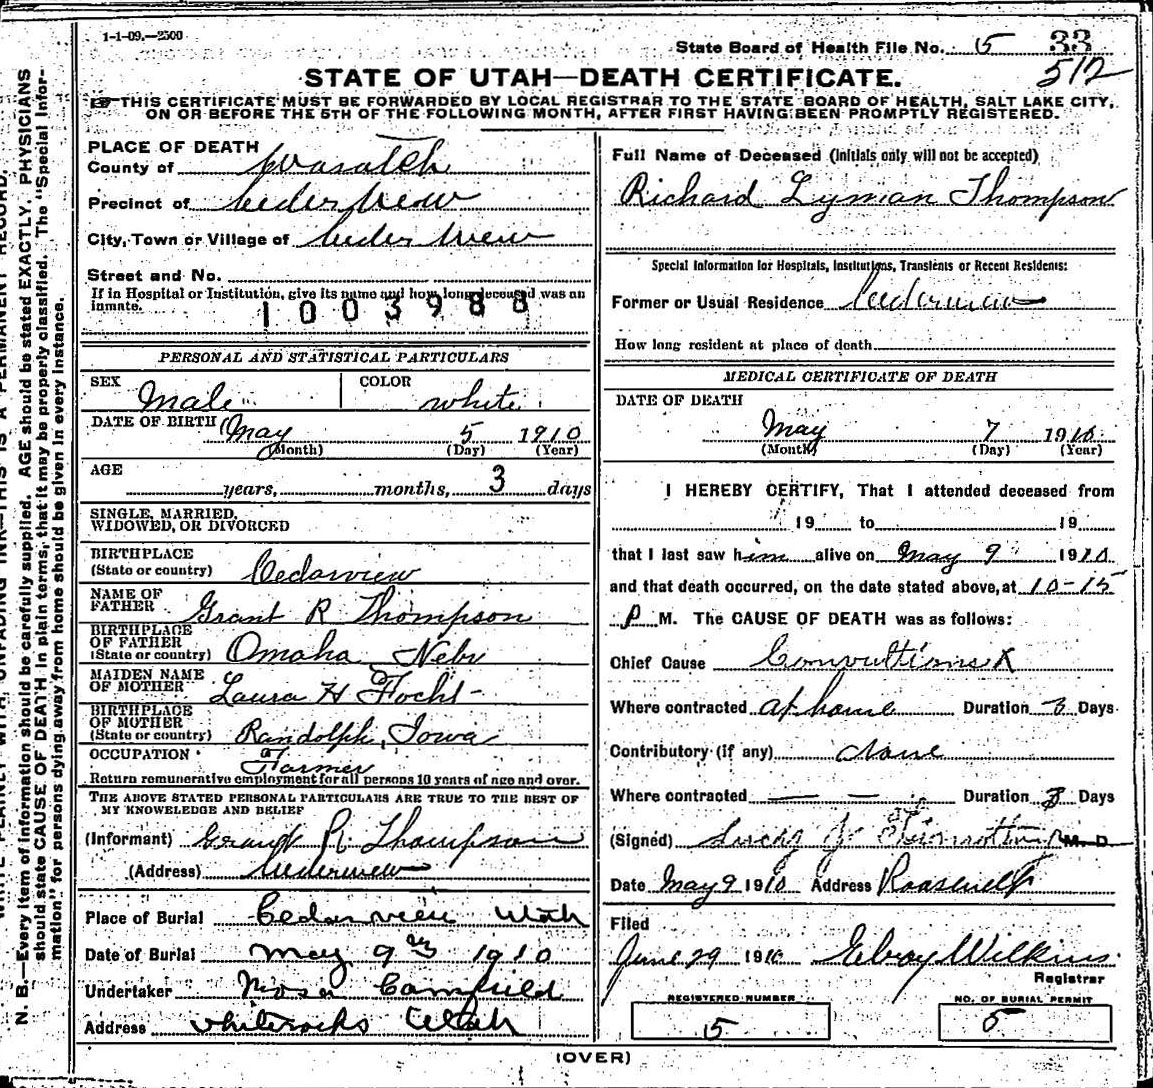 1-1-09.—2500
State Board of Health File No. 5 33
512
STATE OF UTAH—DEATH CERTIFICATE.
THIS CERTIFICATE MUST BE FORWARDED BY LOCAL REGISTRAR TO THE STATE BOARD OF HEALTH, SALT LAKE CITY,
ON OR BEFORE THE 5TH OF THE FOLLOWING MONTH, AFTER FIRST HAVING BEEN PROMPTLY REGISTERED.
PLACE OF DEATH
County of Wasatch
Precinct of Cedarview
City, Town or Village of Cedar View
Street and No.
If in Hospital or Institution, give its name and how long deceased was an
inmate.
1003988
PERSONAL AND STATISTICAL PARTICULARS
SEX Male COLOR white
DATE OF BIRTH May 5 1910
(Month) (Day) (Year)
AGE years, months, 3 days
SINGLE, MARRIED,
WIDOWED, OR DIVORCED
BIRTHPLACE
(State or country) Cedarview
NAME OF
FATHER Grant R Thompson
BIRTHPLACE
OF FATHER
(State or country) Omaha Nebr
MAIDEN NAME
OF MOTHER Laura H Focht
BIRTHPLACE
OF MOTHER
(State or country) Randolph, Iowa
OCCUPATION Farmer
Return remunerative employment for all persons 10 years of age and over.
THE ABOVE STATED PERSONAL PARTICULARS ARE TRUE TO THE BEST OF
MY KNOWLEDGE AND BELIEF
(Informant) Grant R. Thompson
(Address) Cedarview
Place of Burial Cedarview Utah
Date of Burial May 9 1910
Undertaker Camfield
Address Whiterocks Utah
Full Name of Deceased (Initials only will not be accepted)
Richard Lyman Thompson
Special Information for Hospitals, Institutions, Transients or Recent Residents:
Former or Usual Residence Cedarview
How long resident at place of death
MEDICAL CERTIFICATE OF DEATH
DATE OF DEATH
May 7 1910
(Month) (Day) (Year)
I HEREBY CERTIFY, That I attended deceased from
19 to 19
that I last saw him alive on May 9 1910
and that death occurred, on the date stated above, at 10-15
P M. The CAUSE OF DEATH was as follows:
Chief Cause Convultions X
Where contracted at home Duration 3 Days
Contributory (if any) none
Where contracted — — — Duration 3 Days
(Signed) M. D.
Date May 9 1910 Address Roosevelt
Filed
June 29 1910 Elroy Wilkins
Registrar
REGISTERED NUMBER
5
NO. OF BURIAL PERMIT
5
(OVER)
N. B.—Every item of information should be carefully supplied. AGE should be stated EXACTLY. PHYSICIANS
should state CAUSE OF DEATH in plain terms, that it may be properly classified. The "Special Infor-
mation" for persons dying away from home should be given in every instance.